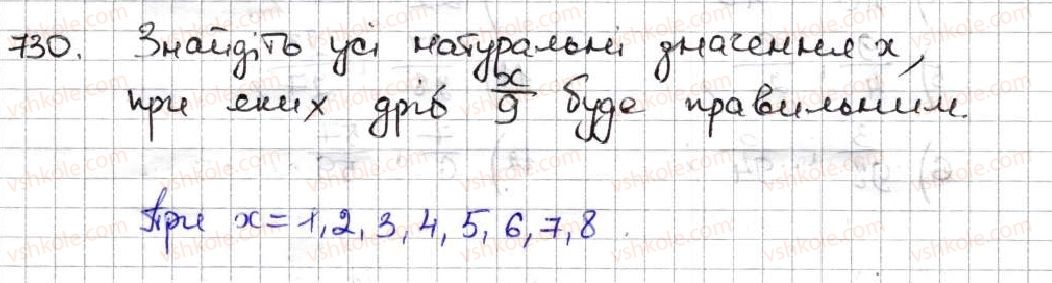 730. Знайдіть усі натуральні значення x,
при яких дріб x/9 буде правильним.
При x = 1, 2, 3, 4, 5, 6, 7, 8